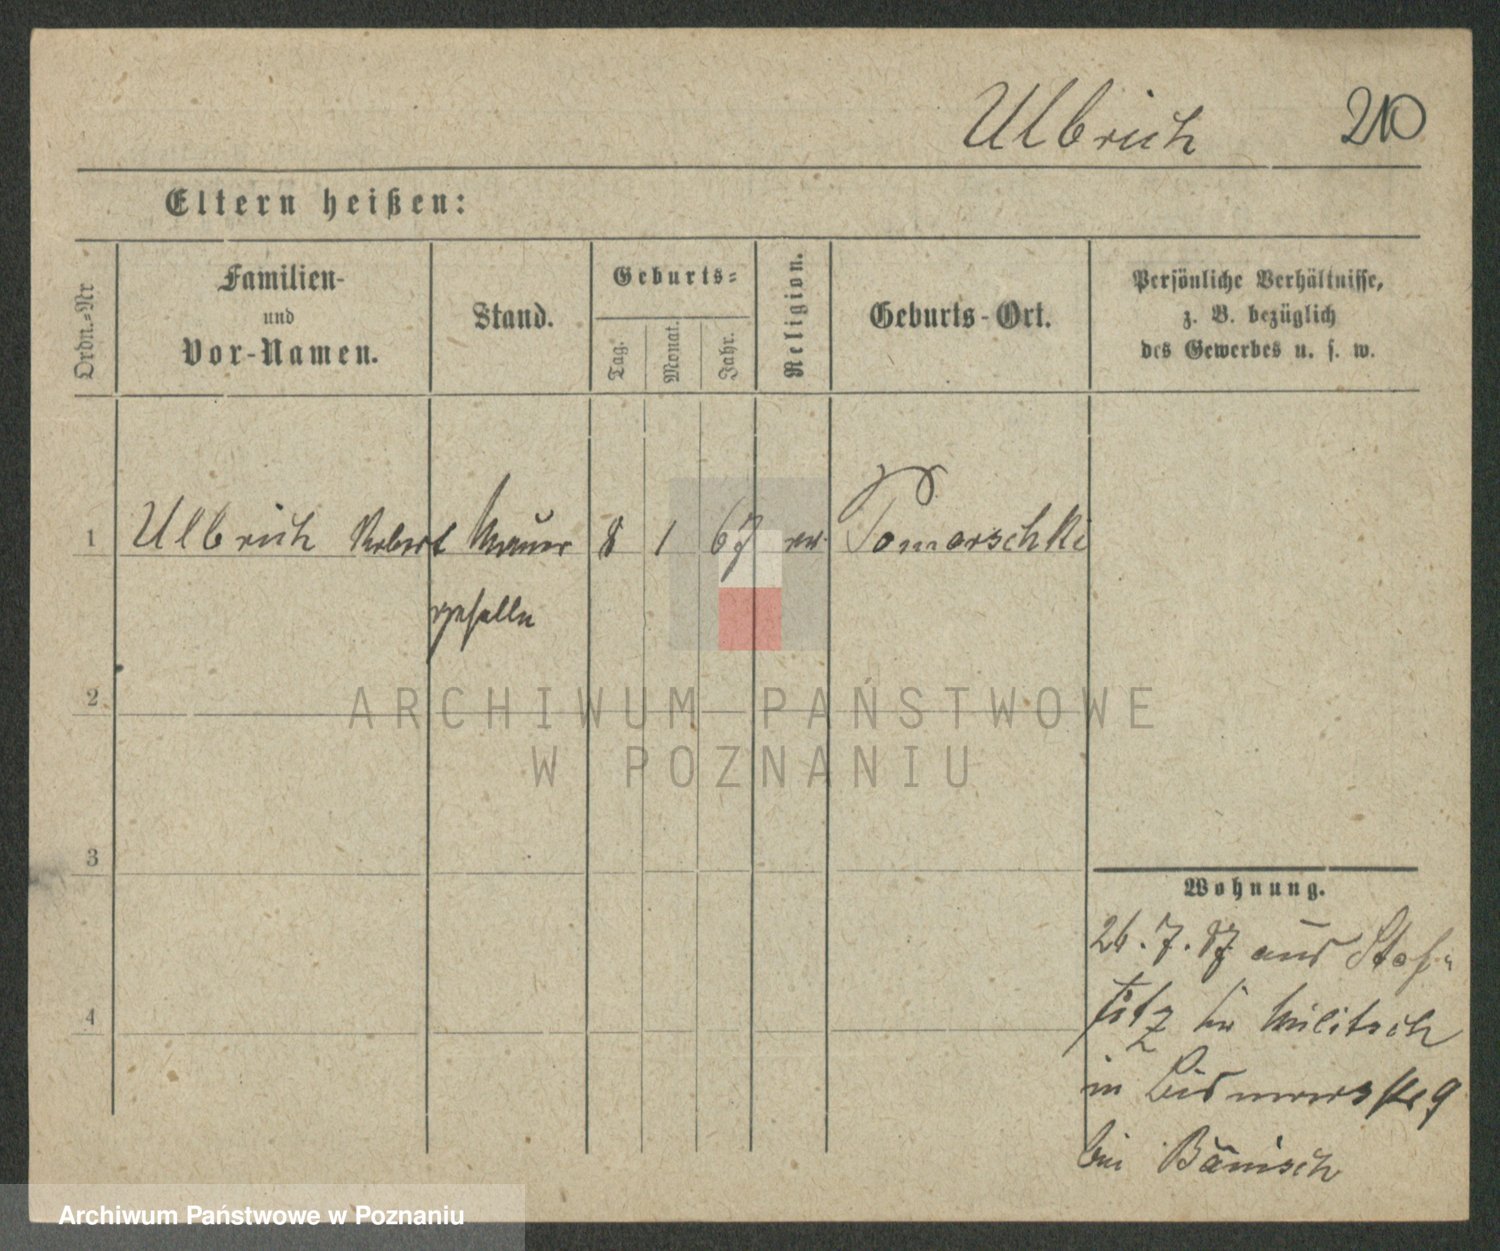 Ulbrich 210
Eltern heißen:
Ordn.=Nr
Familien-
und
Vor-Namen.
Stand.
Geburts=
Tag.
Monat.
Jahr.
Religion.
Geburts-Ort.
Persönliche Verhältnisse,
z. B. bezüglich
des Gewerbes u. s. w.
1 Ulbrich Robert Maurer 8 1 67 ev. Pomorschki
geselle
2
ARCHIWUM PAŃSTWOWE
W POZNANIU
3
Wohnung.
26. 7. 87 aus
4
Kr Militsch
in 9
bei Bänisch
Archiwum Państwowe w Poznaniu